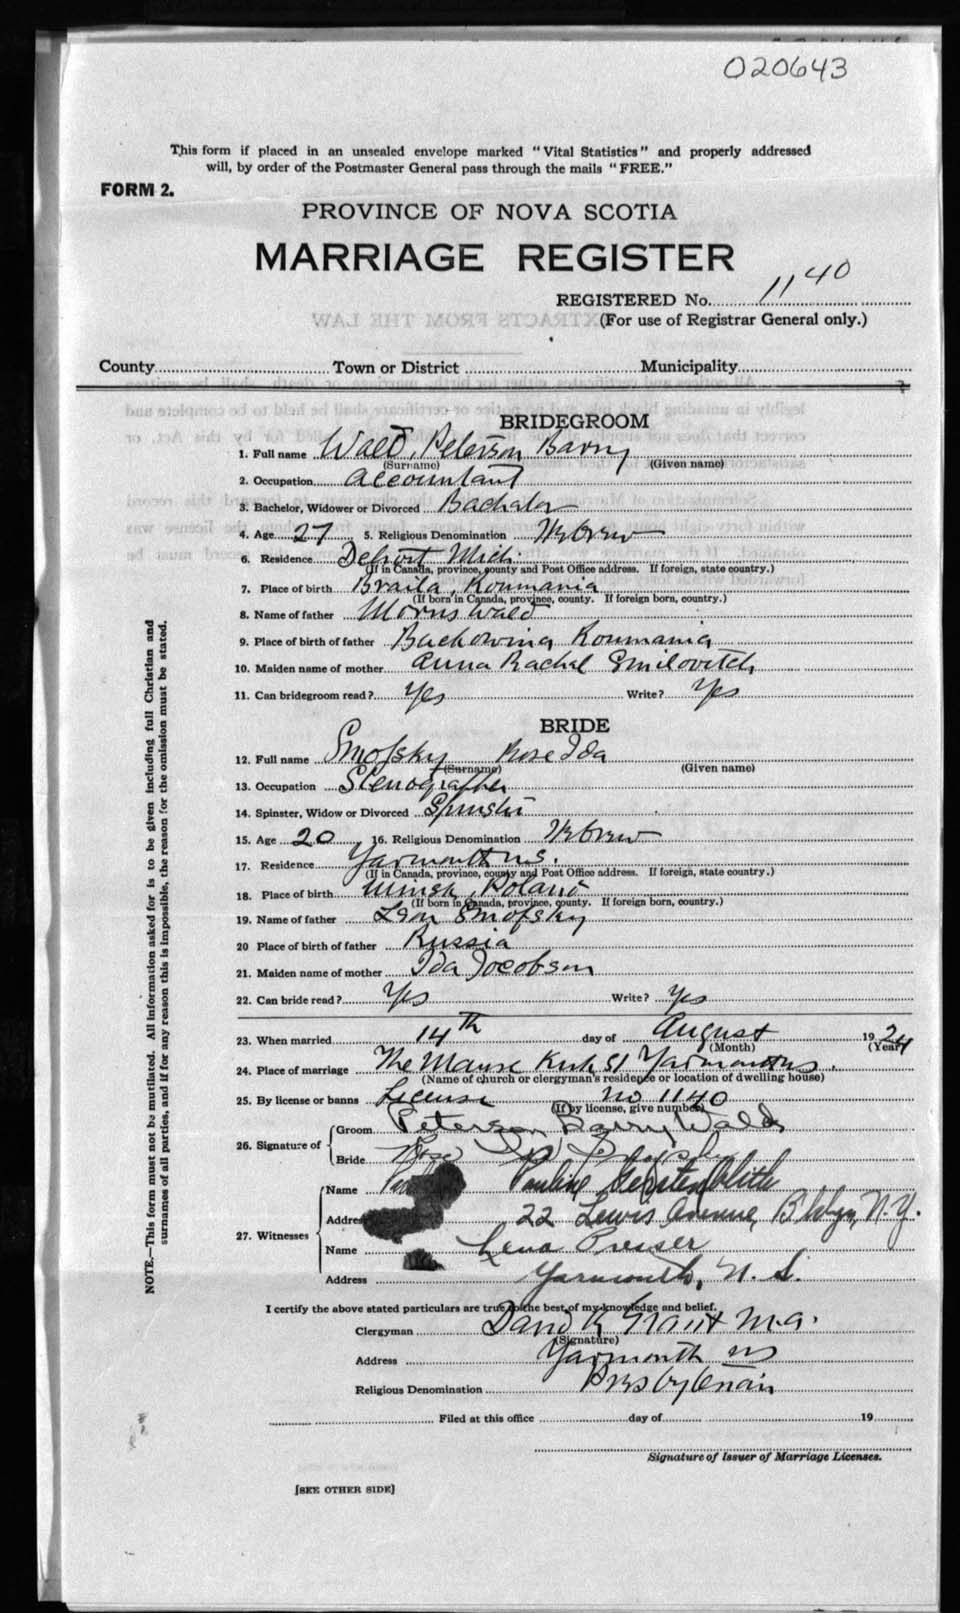 020643
This form if placed in an unsealed envelope marked "Vital Statistics" and properly addressed
will, by order of the Postmaster General pass through the mails "FREE."
FORM 2.
PROVINCE OF NOVA SCOTIA
MARRIAGE REGISTER
REGISTERED No. 1140
(For use of Registrar General only.)
County Town or District Municipality
BRIDEGROOM
1. Full name Wald, Peterson Barry
(Surname) (Given name)
2. Occupation Accountant
3. Bachelor, Widower or Divorced Bachelor
4. Age 27 5. Religious Denomination Hebrew
6. Residence Detroit Mich.
(If in Canada, province, county and Post Office address. If foreign, state country.)
7. Place of birth Braila, Roumania
(If born in Canada, province, county. If foreign born, country.)
8. Name of father Morris Wald
9. Place of birth of father Buckowina Roumania
10. Maiden name of mother Anna Rachel Smilovitch
11. Can bridegroom read? Yes Write? Yes
BRIDE
12. Full name Smofsky Rose Ida
(Surname) (Given name)
13. Occupation Stenographer
14. Spinster, Widow or Divorced Spinster
15. Age 20 16. Religious Denomination Hebrew
17. Residence Yarmouth N.S.
(If in Canada, province, county and Post Office address. If foreign, state country.)
18. Place of birth Minsk, Poland
(If born in Canada, province, county. If foreign born, country.)
19. Name of father Leon Smofsky
20 Place of birth of father Russia
21. Maiden name of mother Ida Jacobson
22. Can bride read? Yes Write? Yes
23. When married 14th day of August 1924
(Month) (Year)
24. Place of marriage The Manse Kirk St Yarmouth N.S.
(Name of church or clergyman's residence or location of dwelling house)
25. By license or banns License No 1140
(If by license, give number)
26. Signature of Groom Peterson Barry Wald
Bride Rose Ida Smofsky
27. Witnesses Name Pauline Gerstenblith
Address 22 Lewis Avenue, Bklyn, N.Y.
Name Lena Presser
Address Yarmouth, N. S.
I certify the above stated particulars are true to the best of my knowledge and belief.
Clergyman David K Grant M.A.
(Signature)
Address Yarmouth NS
Religious Denomination Presbyterian
Filed at this office day of 19
Signature of Issuer of Marriage Licenses.
[SEE OTHER SIDE]
NOTE.—This form must not be mutilated. All information asked for is to be given including full Christian and
surnames of all parties, and if for any reason this is impossible, the reason for the omission must be stated.